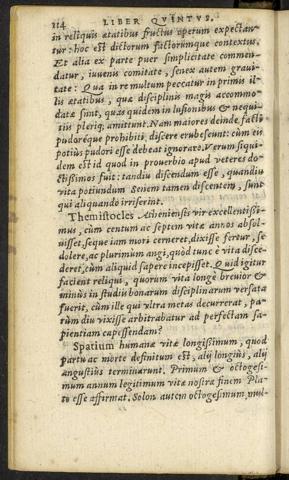 114 LIBER QVINTVS.
in reliquis ætatibus fructus operum expectan-
tur: hoc est dictorum factorumque contextus.
Et alia ex parte puer simplicitate commen-
datur, iuuenis comitate, senex autem graui-
tate: Qua in re multum peccatur in primis il-
lis ætatibus, quæ disciplinis magis accommo-
datæ sint, quas quidem in lusionibus & nequi-
tiis pleriq; amittunt. Nam maiores deinde, facti
pudoréque prohibiti, discere erubescunt: cùm eis
potiùs pudori esse debeat ignorare. Verum siqui-
dem est id quod in prouerbio apud veteres do-
ctißimos fuit: tandiu discendum esse, quandiu
vita potiundum Senem tamen discentem, sunt
qui aliquando irriserint.
Themistocles Atheniensis vir excellentißi-
mus, cùm centum ac septem vitæ annos absol-
uisset, seque iam mori cerneret, dixisse fertur, se
dolere, ac plurimum angi, quòd tunc è vita disce-
deret, cùm aliquid sapere incepisset. Quid igitur
facient reliqui, quorum vita longè breuior &
minùs in studiis bonarum disciplinarum versata
fuerit, cùm ille qui vltra metas decurrerat, pa-
rùm diu vixisse arbitrabatur ad perfectam sa-
pientiam capessendam?
Spatium humanæ vitæ longißimum, quod
partu ac morte definitum est, alij longiùs, alij
angustiùs terminarunt. Primum & octogesi-
mum annum legitimum vitæ nostræ finem Pla-
to esse affirmat. Solon autem octogesimum, mul-